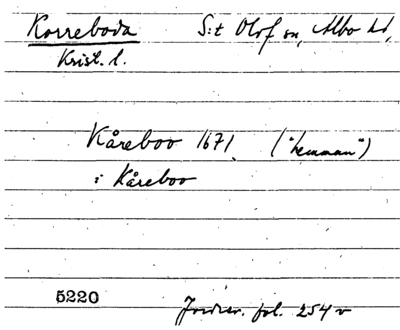 Korreboda S:t Olof sn, Albo hd,
Krist. l.
Kåreboo 1671 ("hemman")
i Kåreboo
5220 Jordrev. fol. 254 v